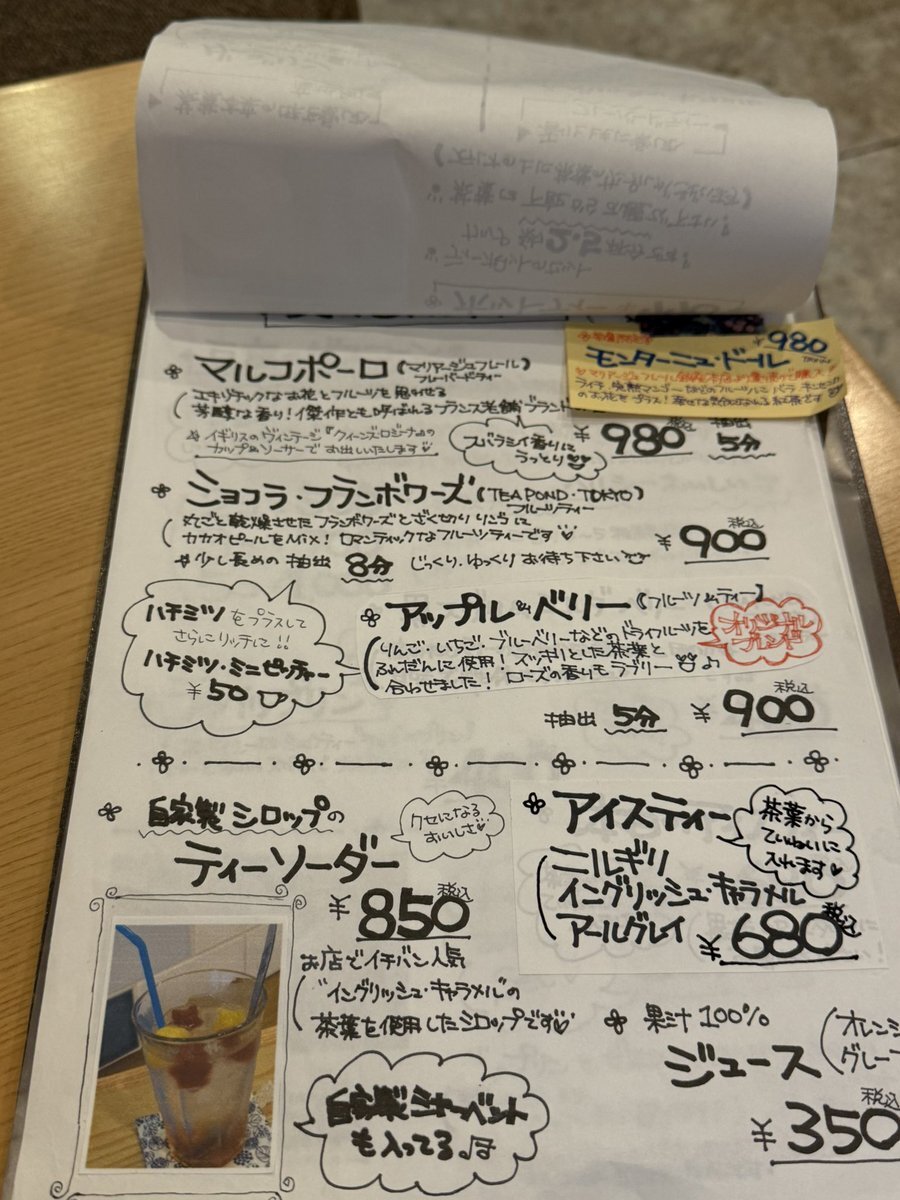 ¥980
モンターニュ・ドール
マルコポーロ(マリアージュフレール)
フレーバードティー
エキゾチックなお花とフルーツを思わせる
芳醇な香り!傑作とも呼ばれるフランス老舗ブランド
※イギリスのヴィンテージ『クィーンズ・ロジーナ』の
カップ&ソーサーでお出しいたします
スバラシイ香りに
うっとり
¥980 税込
抽出
5分
ショコラ・フランボワーズ(TEAPOND・TOKYO)
フルーツティー
丸ごと乾燥させたフランボワーズとざく切りりんごに
カカオピールをMix!ロマンティックなフルーツティーです
¥900 税込
※少し長めの抽出 8分 じっくり、ゆっくりお待ち下さい
ハチミツをプラスして
さらにリッチに!!
ハチミツ・ミニピッチャー
¥50
アップル&ベリー【フルーツinティー】
オリジナル
ブレンド
りんご・いちご・ブルーベリーなどのドライフルーツを
ふんだんに使用!スッキリとした茶葉と
合わせました!ローズの香りもラブリー♪
抽出 5分 ¥900 税込
自家製シロップの
ティーソーダー
クセになる
おいしさ
¥850 税込
お店でイチバン人気
"イングリッシュ・キャラメル"の
茶葉を使用したシロップです
自家製シャーベット
も入ってる♫
アイスティー
茶葉から
ていねいに
入れます
ニルギリ
イングリッシュ・キャラメル
アールグレイ
¥680 税込
果汁100%
ジュース
オレンジ
グレープ
¥350 税込